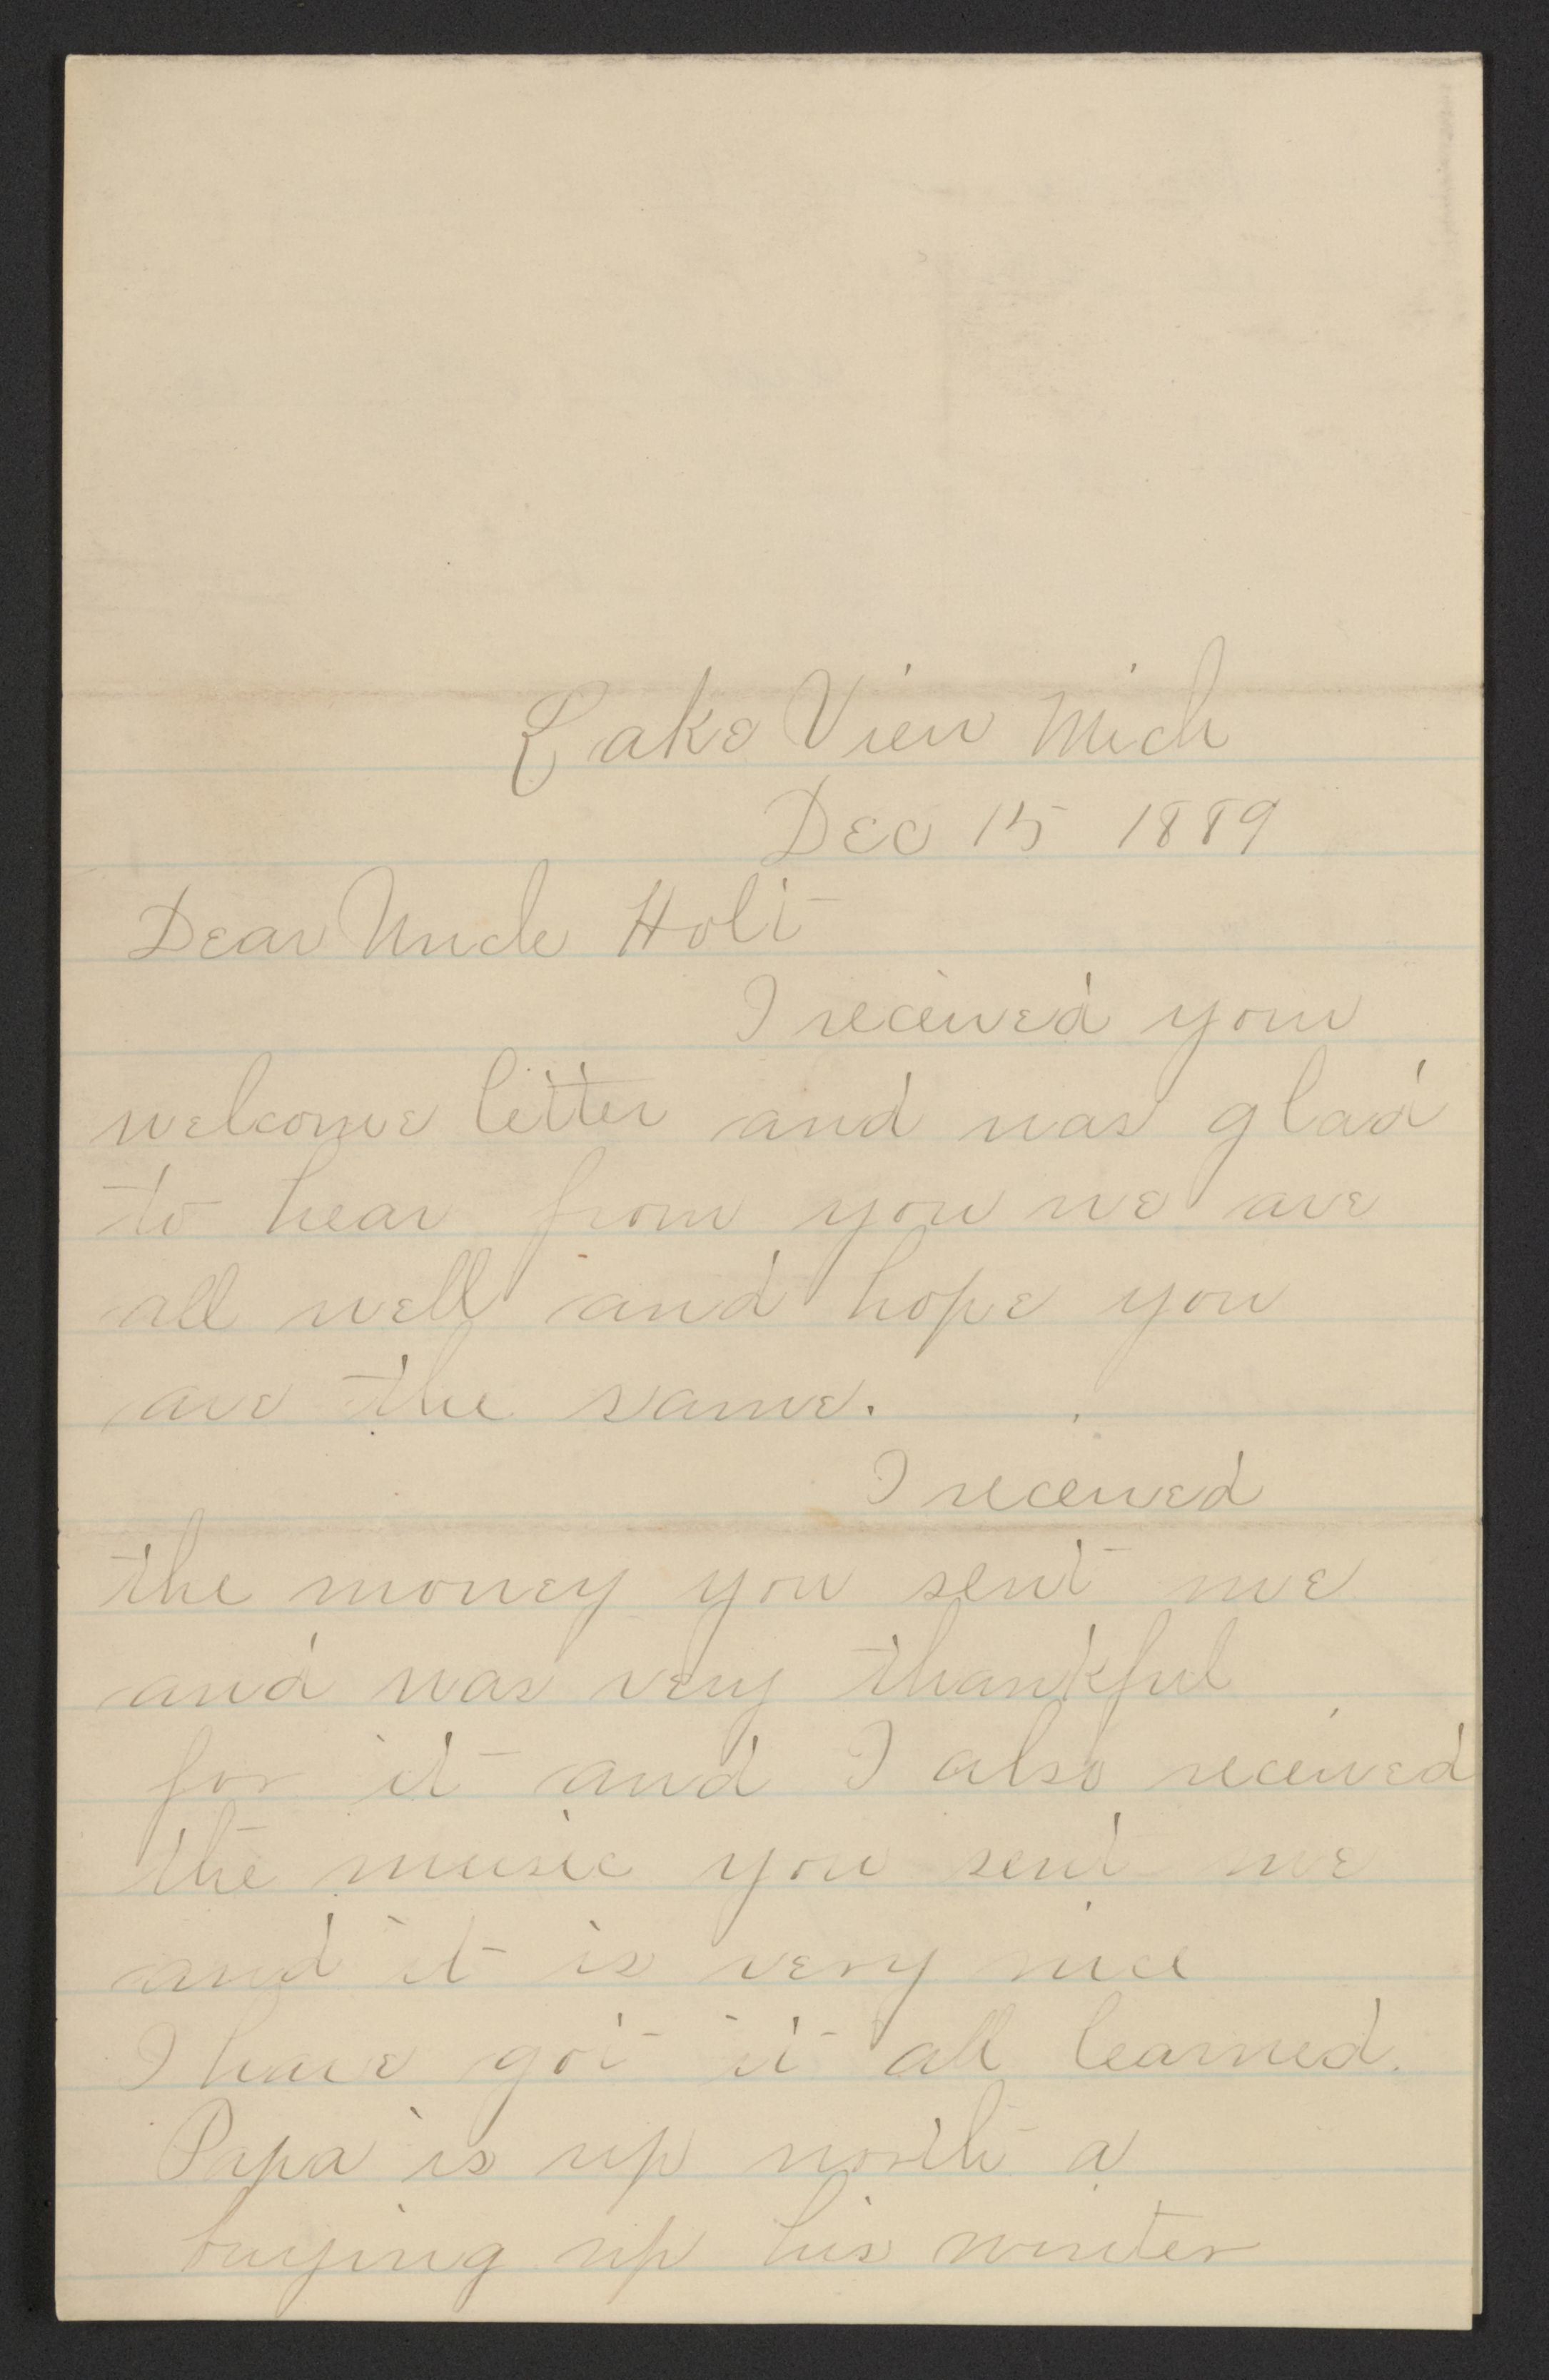 Lake View Mich
Dec 15 1889
Dear Uncle Holt
I received your
welcome letter and was glad
to hear from you we are
all well and hope you
are the same.
I received
the money you sent me
and was very thankful
for it and I also received
the music you sent me
and it is very nice
I have got it all learned.
Papa is up north a
buying up his winter